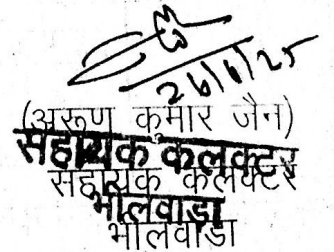 26/6/25
(अरूण कुमार जैन)
सहायक कलक्टर
सहायक कलक्टर
भीलवाड़ा
भीलवाड़ा